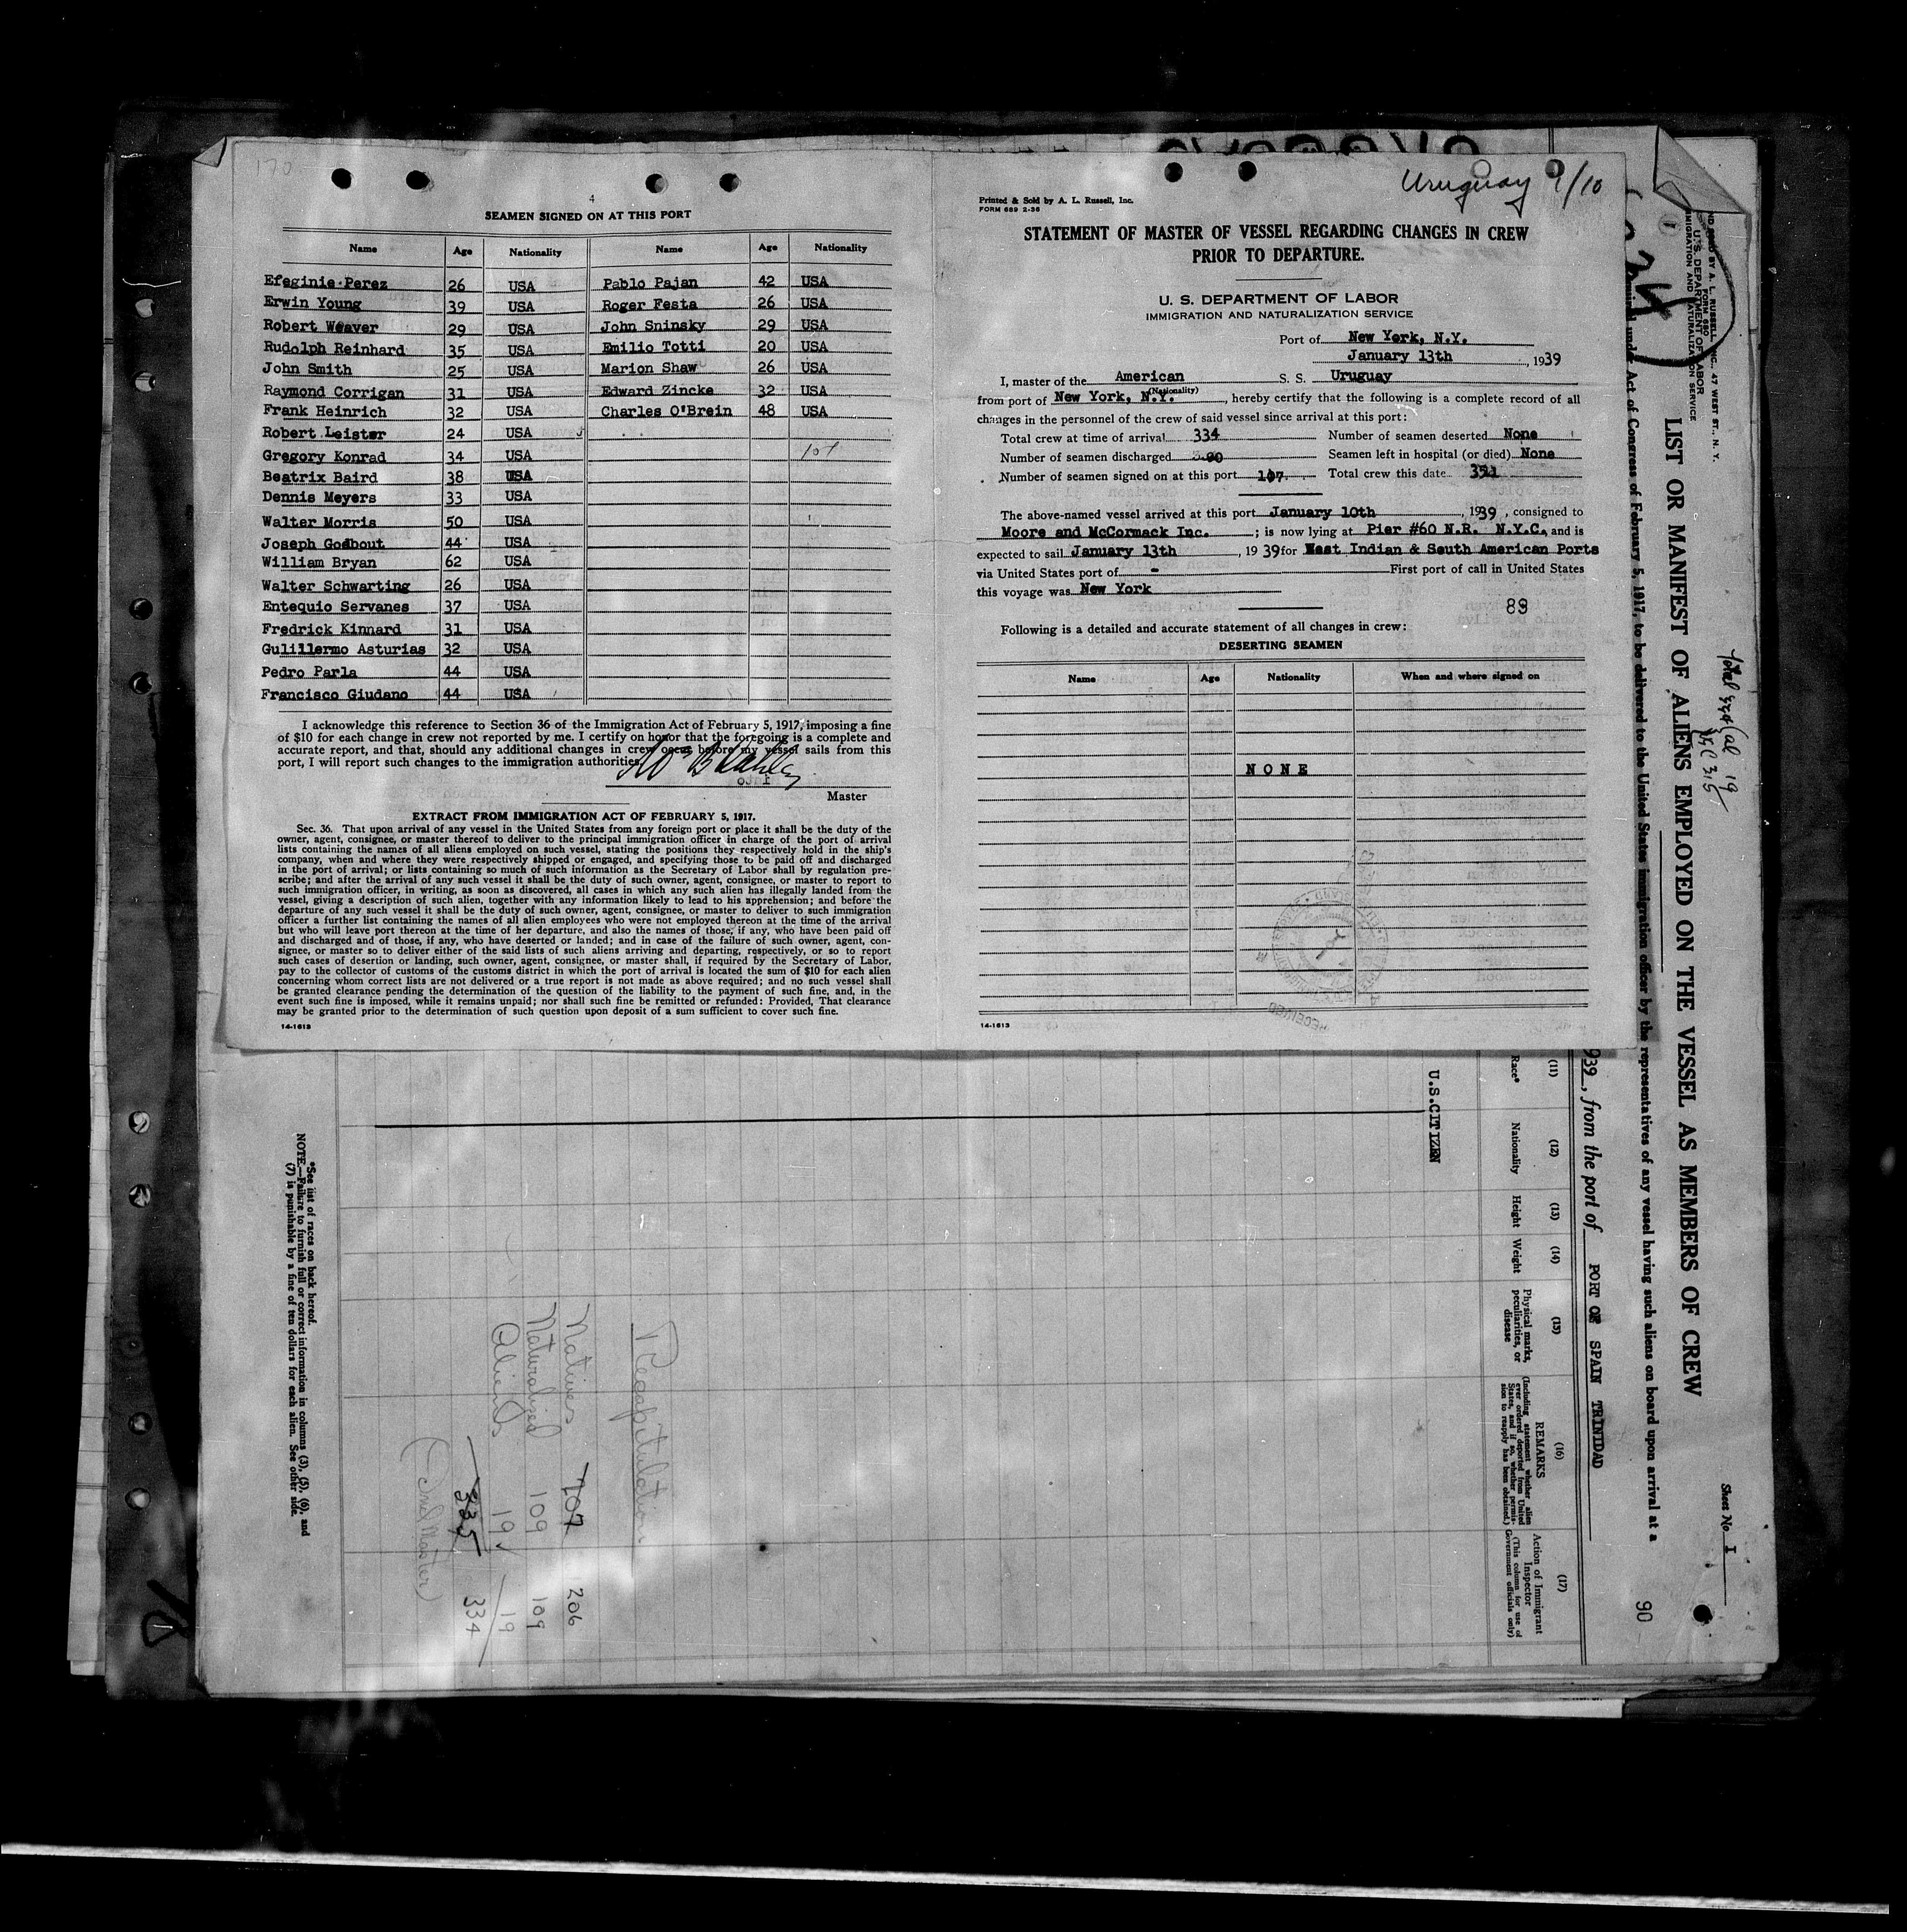 170
4
SEAMEN SIGNED ON AT THIS PORT
Name Age Nationality Name Age Nationality
Efeginie Perez 26 USA Pablo Pajan 42 USA
Erwin Young 39 USA Roger Festa 26 USA
Robert Weaver 29 USA John Sninsky 29 USA
Rudolph Reinhard 35 USA Emilio Totti 20 USA
John Smith 25 USA Marion Shaw 26 USA
Raymond Corrigan 31 USA Edward Zincke 32 USA
Frank Heinrich 32 USA Charles O'Brein 48 USA
Robert Leister 24 USA
Gregory Konrad 34 USA 107
Beatrix Baird 38 USA
Dennis Meyers 33 USA
Walter Morris 50 USA
Joseph Godbout 44 USA
William Bryan 62 USA
Walter Schwarting 26 USA
Entequio Servanes 37 USA
Fredrick Kinnard 31 USA
Gulillermo Asturias 32 USA
Pedro Parla 44 USA
Francisco Giudano 44 USA
I acknowledge this reference to Section 36 of the Immigration Act of February 5, 1917, imposing a fine
of $10 for each change in crew not reported by me. I certify on honor that the foregoing is a complete and
accurate report, and that, should any additional changes in crew occur before my vessel sails from this
port, I will report such changes to the immigration authorities.
Master
EXTRACT FROM IMMIGRATION ACT OF FEBRUARY 5, 1917.
Sec. 36. That upon arrival of any vessel in the United States from any foreign port or place it shall be the duty of the
owner, agent, consignee, or master thereof to deliver to the principal immigration officer in charge of the port of arrival
lists containing the names of all aliens employed on such vessel, stating the positions they respectively hold in the ship's
company, when and where they were respectively shipped or engaged, and specifying those to be paid off and discharged
in the port of arrival; or lists containing so much of such information as the Secretary of Labor shall by regulation pre-
scribe; and after the arrival of any such vessel it shall be the duty of such owner, agent, consignee, or master to report to
such immigration officer, in writing, as soon as discovered, all cases in which any such alien has illegally landed from the
vessel, giving a description of such alien, together with any information likely to lead to his apprehension; and before the
departure of any such vessel it shall be the duty of such owner, agent, consignee, or master to deliver to such immigration
officer a further list containing the names of all alien employees who were not employed thereon at the time of the arrival
but who will leave port thereon at the time of her departure, and also the names of those, if any, who have been paid off
and discharged and of those, if any, who have deserted or landed; and in case of the failure of such owner, agent, con-
signee, or master so to deliver either of the said lists of such aliens arriving and departing, respectively, or so to report
such cases of desertion or landing, such owner, agent, consignee, or master shall, if required by the Secretary of Labor,
pay to the collector of customs of the customs district in which the port of arrival is located the sum of $10 for each alien
concerning whom correct lists are not delivered or a true report is not made as above required; and no such vessel shall
be granted clearance pending the determination of the question of the liability to the payment of such fine, and, in the
event such fine is imposed, while it remains unpaid; nor shall such fine be remitted or refunded: Provided, That clearance
may be granted prior to the determination of such question upon deposit of a sum sufficient to cover such fine.
14-1613
Uruguay 1/10
Printed & Sold by A. L. Russell, Inc.
FORM 689 2-36
STATEMENT OF MASTER OF VESSEL REGARDING CHANGES IN CREW
PRIOR TO DEPARTURE.
U. S. DEPARTMENT OF LABOR
IMMIGRATION AND NATURALIZATION SERVICE
Port of New York, N.Y.
January 13th, 1939
I, master of the American S. S. Uruguay
(Nationality)
from port of New York, N.Y., hereby certify that the following is a complete record of all
changes in the personnel of the crew of said vessel since arrival at this port:
Total crew at time of arrival 334 Number of seamen deserted None
Number of seamen discharged 90 Seamen left in hospital (or died) None
Number of seamen signed on at this port 107 Total crew this date 351
The above-named vessel arrived at this port January 10th, 1939, consigned to
Moore and McCormack Inc.; is now lying at Pier #60 N.R. N.Y.C. and is
expected to sail January 13th, 1939 for West Indian & South American Ports
via United States port of - First port of call in United States
this voyage was New York
89
Following is a detailed and accurate statement of all changes in crew:
DESERTING SEAMEN
Name Age Nationality When and where signed on
NONE
RECEIVED
14-1613
24
LIST OR MANIFEST OF ALIENS EMPLOYED ON THE VESSEL AS MEMBERS OF CREW
under Act of Congress of February 5, 1917, to be delivered to the United States immigration officer by the representatives of any vessel having such aliens on board upon arrival at a
BY A. L. RUSSELL, INC., 47 WEST ST., N. Y.
FORM 680
U. S. DEPARTMENT OF LABOR
IMMIGRATION AND NATURALIZATION SERVICE
Total 334 (al 19
315
Sheet No. I
90
939, from the port of PORT OF SPAIN TRINIDAD
(11) (12) (13) (14) (15) (16) (17)
Race* Nationality Height Weight Physical marks, peculiarities, or disease
REMARKS
(Including statement whether alien ever ordered deported from United States, and if so, whether permission to reapply has been obtained.)
Action of Immigrant Inspector
(This column for use of Government officials only)
U.S.CITIZEN
Recapitulation
Natives 207 206
Naturalized 109 109
Aliens 19 19
335 334
(Incl Master)
*See list of races on back hereof.
NOTE.—Failure to furnish full or correct information in columns (3), (5), (6), and
(7) is punishable by a fine of ten dollars for each alien. See other side.